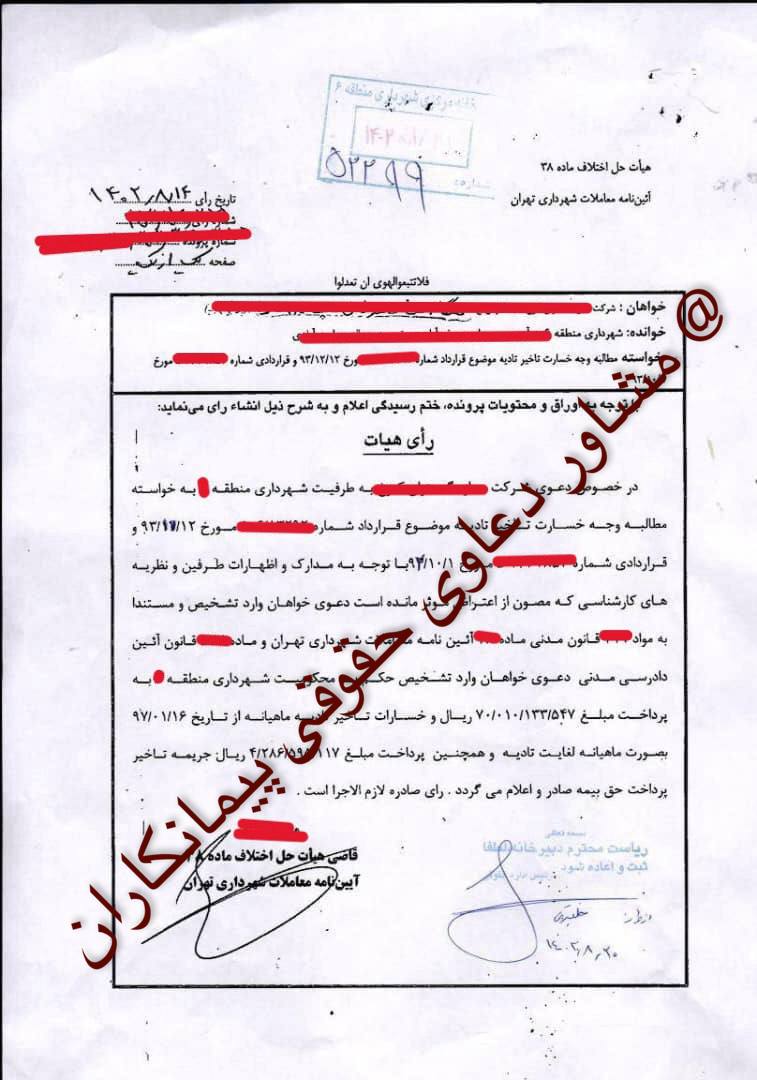 خانه مرکزی شهرداری منطقه ۶
شماره:
۵۲۲۹۹
هیأت حل اختلاف ماده ۳۸
آئین‌نامه معاملات شهرداری تهران
تاریخ رأی ۱۴۰۲/۸/۱۴
شماره پرونده
صفحه یک از یک
فلاتتبعوالهوی ان تعدلوا
خواهان : شرکت
خوانده: شهرداری منطقه
خواسته مطالبه وجه خسارت تاخیر تادیه موضوع قرارداد شماره مورخ ۹۳/۱۲/۱۲ و قراردادی شماره مورخ
با توجه به اوراق و محتویات پرونده، ختم رسیدگی اعلام و به شرح ذیل انشاء رای می‌نماید:
رأی هیات
در خصوص دعوی شرکت به طرفیت شهرداری منطقه به خواسته
مطالبه وجه خسارت تاخیر تادیه موضوع قرارداد شماره مورخ ۹۳/۱۲/۱۲ و
قراردادی شماره مورخ ۹۳/۱۰/۱ با توجه به مدارک و اظهارات طرفین و نظریه
های کارشناسی که مصون از اعتراض موثر مانده است دعوی خواهان وارد تشخیص و مستندا
به مواد قانون مدنی ماده آئین نامه معاملات شهرداری تهران و ماده قانون آئین
دادرسی مدنی دعوی خواهان وارد تشخیص حکم محکومیت شهرداری منطقه به
پرداخت مبلغ ۷۰/۰۱۰/۱۳۳/۵۴۷ ریال و خسارات تاخیر تادیه ماهیانه از تاریخ ۹۷/۰۱/۱۶
بصورت ماهیانه لغایت تادیه و همچنین پرداخت مبلغ ۴/۲۸۶/۵۹۸/۱۱۷ ریال جریمه تاخیر
پرداخت حق بیمه صادر و اعلام می گردد . رای صادره لازم الاجرا است .
قاضی هیأت حل اختلاف ماده ۳۸
آیین‌نامه معاملات شهرداری تهران
بسمه تعالی
ریاست محترم دبیرخانه لطفا
ثبت و اعاده شود
۱۴۰۲/۸/۲۰
@ مشاور دعاوی حقوقی پیمانکاران